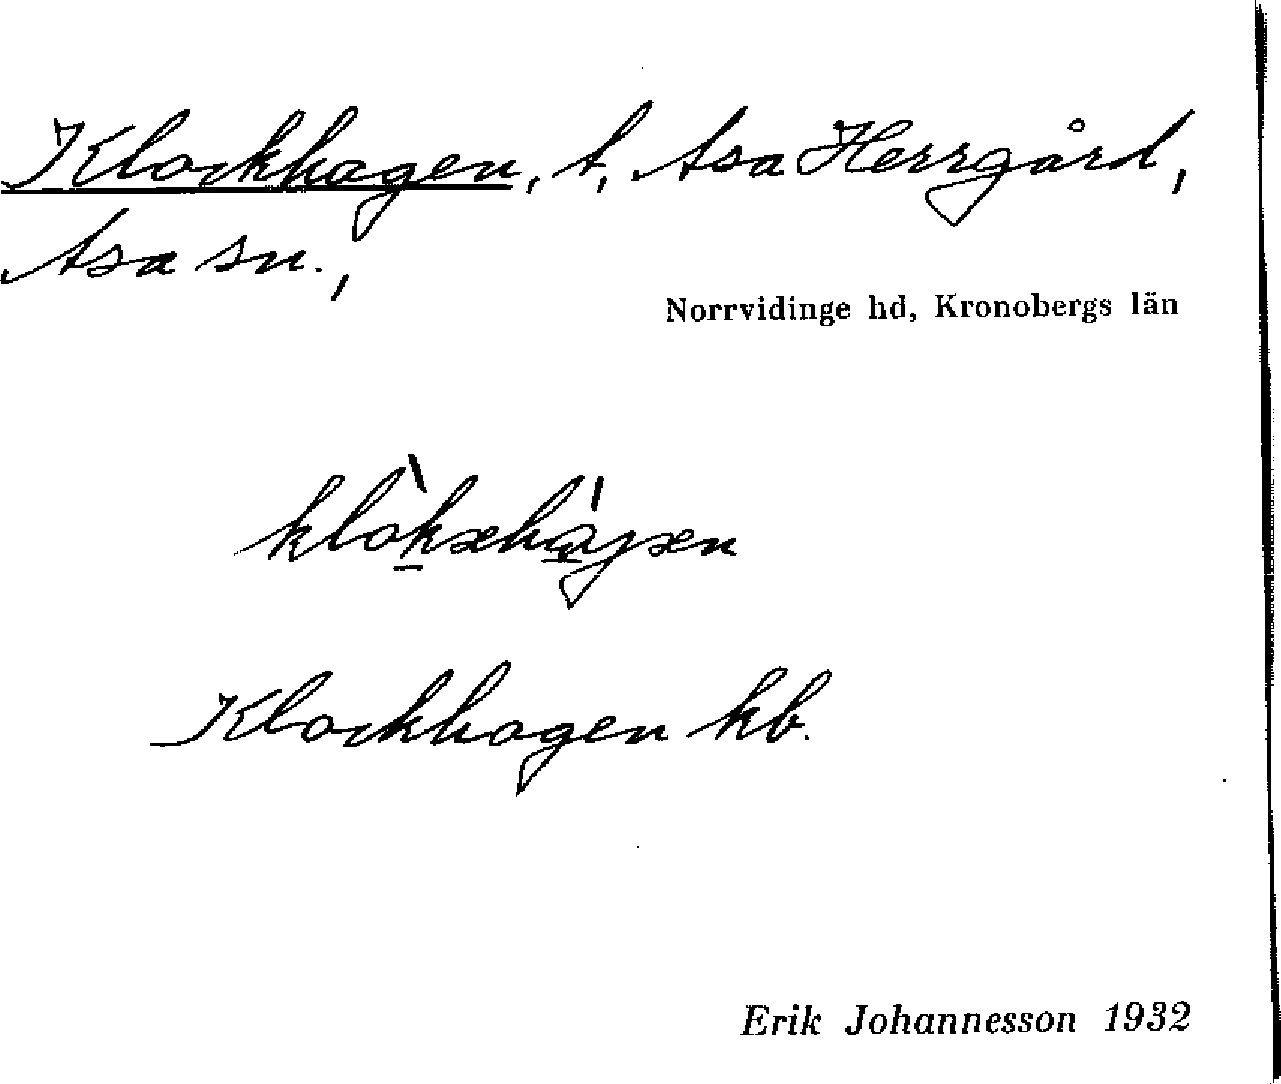 Klockhagen, t, Asa Herrgård,
Asa sn.,
Norrvidinge hd, Kronobergs län
Klockhagen kb.
Erik Johannesson 1932